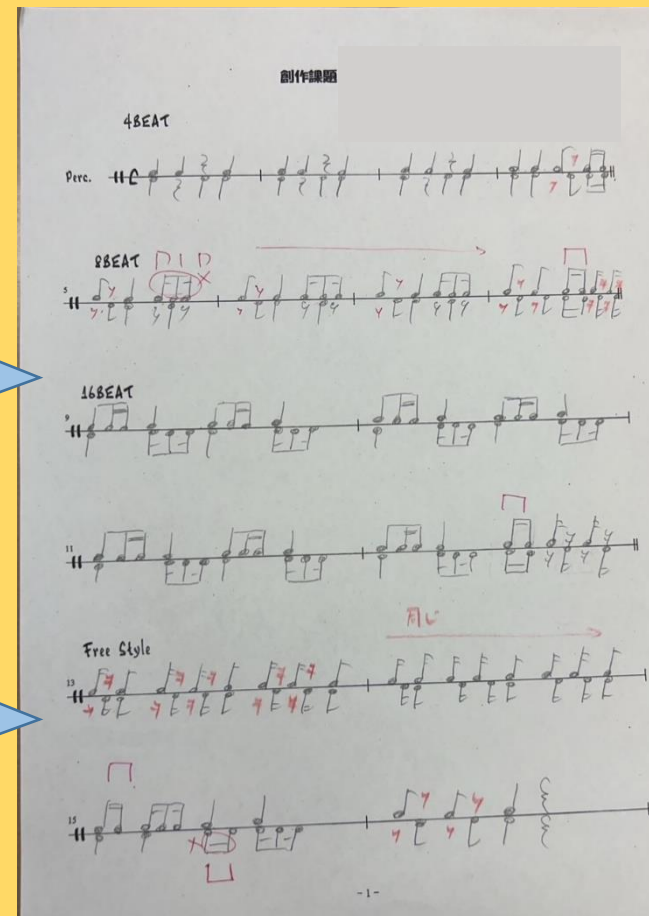 創作課題
4BEAT
Perc.
8BEAT
5
16BEAT
9
11
同じ
Free Style
13
15
-1-